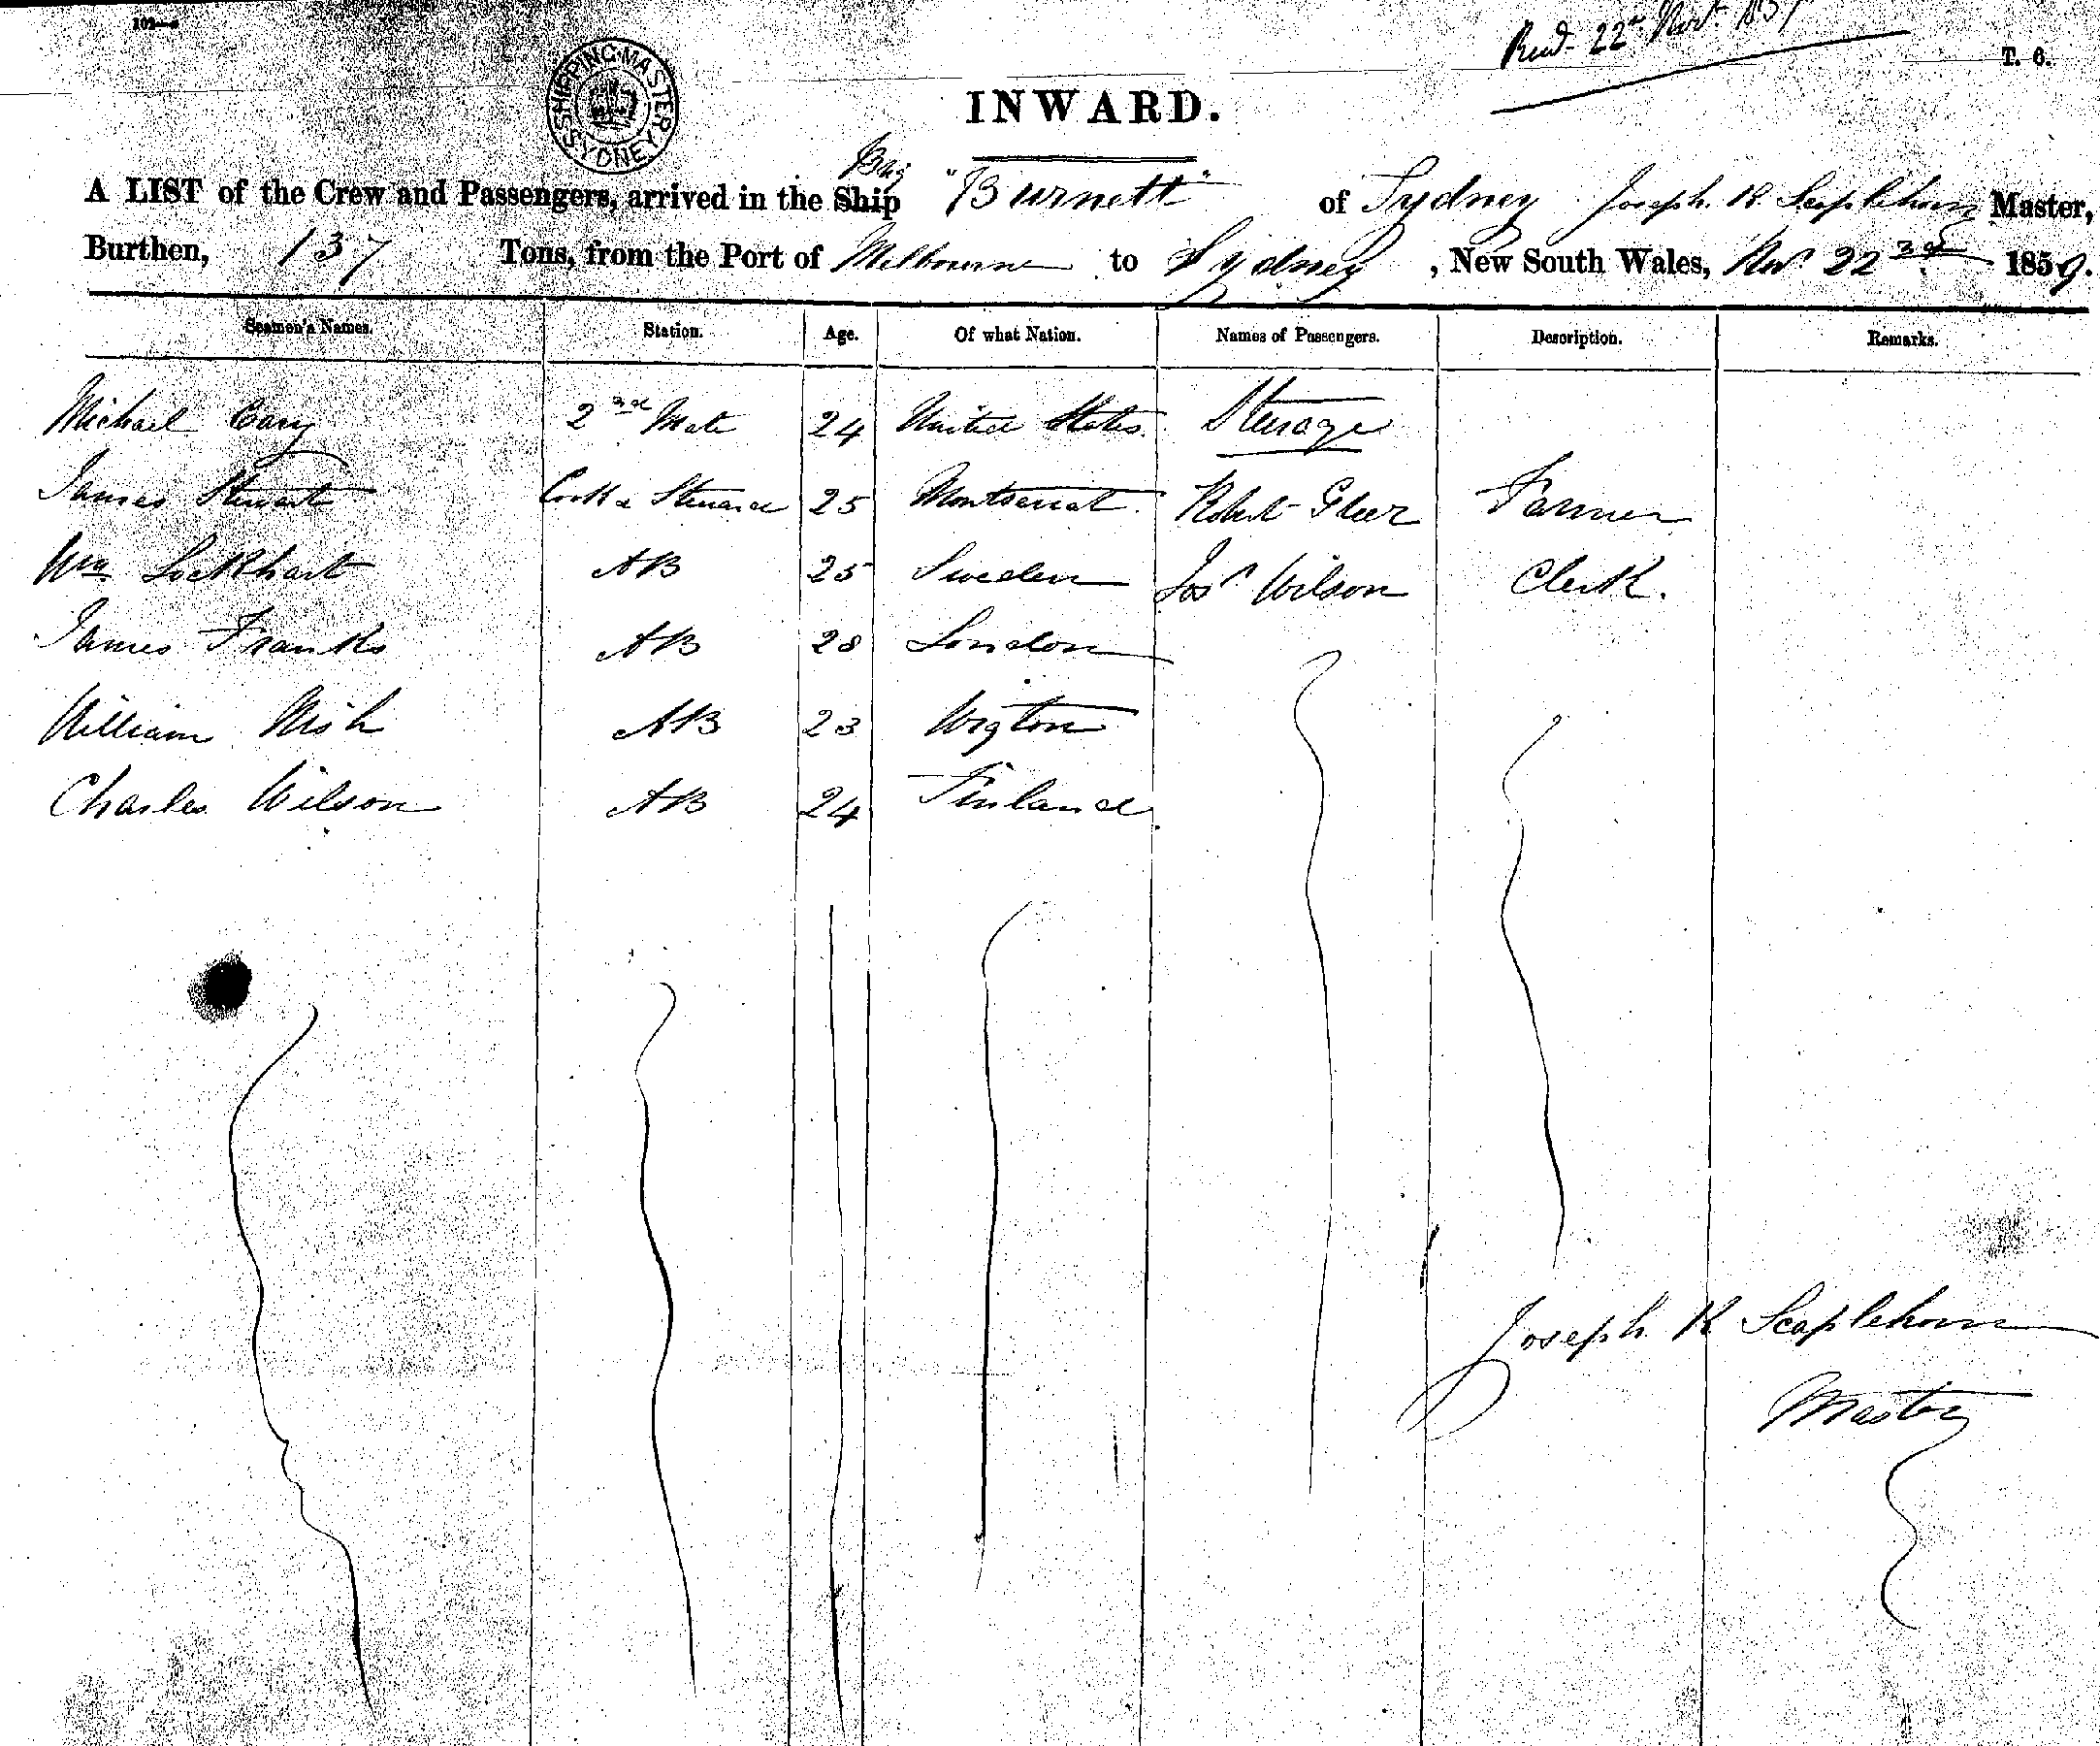 102—a
Recd. 22nd Novr. 1859
T. 6.
SHIPPING MASTER SYDNEY
INWARD.
Brig
A LIST of the Crew and Passengers, arrived in the Ship "Burnett" of Sydney Joseph. K. Scaplehorn Master,
Burthen, 137 Tons, from the Port of Melbourne to Sydney, New South Wales, Nov. 22nd 1859.
Seamen's Names. Station. Age. Of what Nation. Names of Passengers. Description. Remarks.
Michael Cary 2nd Mate 24 United States. Steerage
James Stewart Cook & Steward 25 Montserrat. Robert Gleer Farmer
Wm. Lockhart AB 25 Sweden Jos Wilson Clerk.
James Franks AB 28 London
William Nish AB 23 Wigton
Charles Wilson AB 24 Finland
Joseph. K Scaplehorn
Master